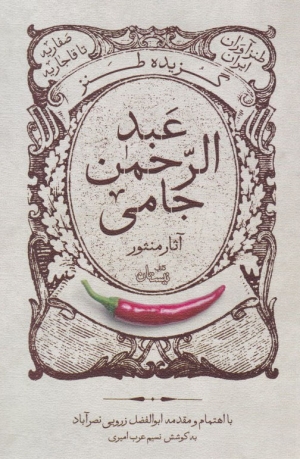 طنزآوران
ایران
صفاریه
تا قاجاریه
گزیده طنز
عبد
الرّحمن
جامی
آثار منثور
کتاب
نیستان
با اهتمام و مقدمه ابوالفضل زرویی نصرآباد
به کوشش نسیم عرب امیری